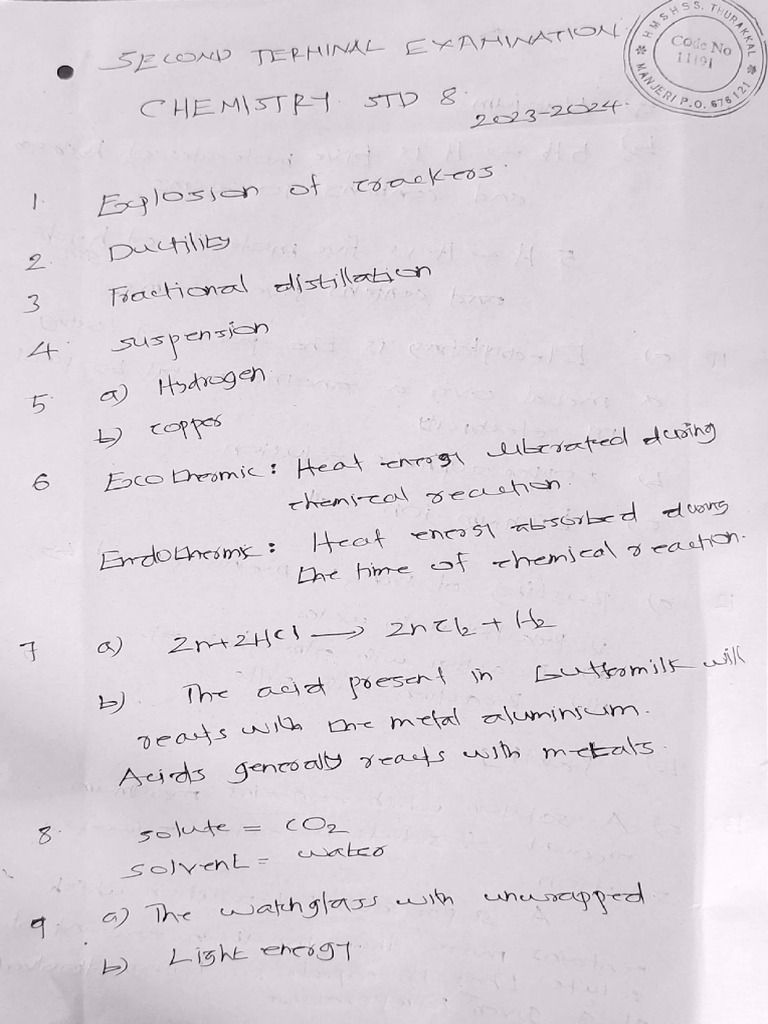 SECOND TERMINAL EXAMINATION
CHEMISTRY STD 8
2023-2024.
HMSHSS, THURAKKAL
MANJERI P.O. 676121
Code No
11191
1. Explosion of crackers.
2. Ductility
3 Fractional distillation
4. suspension
5. a) Hydrogen
b) copper
6 Exothermic : Heat energy liberated during
chemical reaction.
Endothermic : Heat energy absorbed during
the time of chemical reaction.
7 a) Zn+2HCl → ZnCl2 + H2
b) The acid present in buttermilk will
reacts with the metal aluminium.
Acids generally reacts with metals.
8. solute = CO2
solvent = water
9 a) The watchglass with unwrapped
b) Light energy